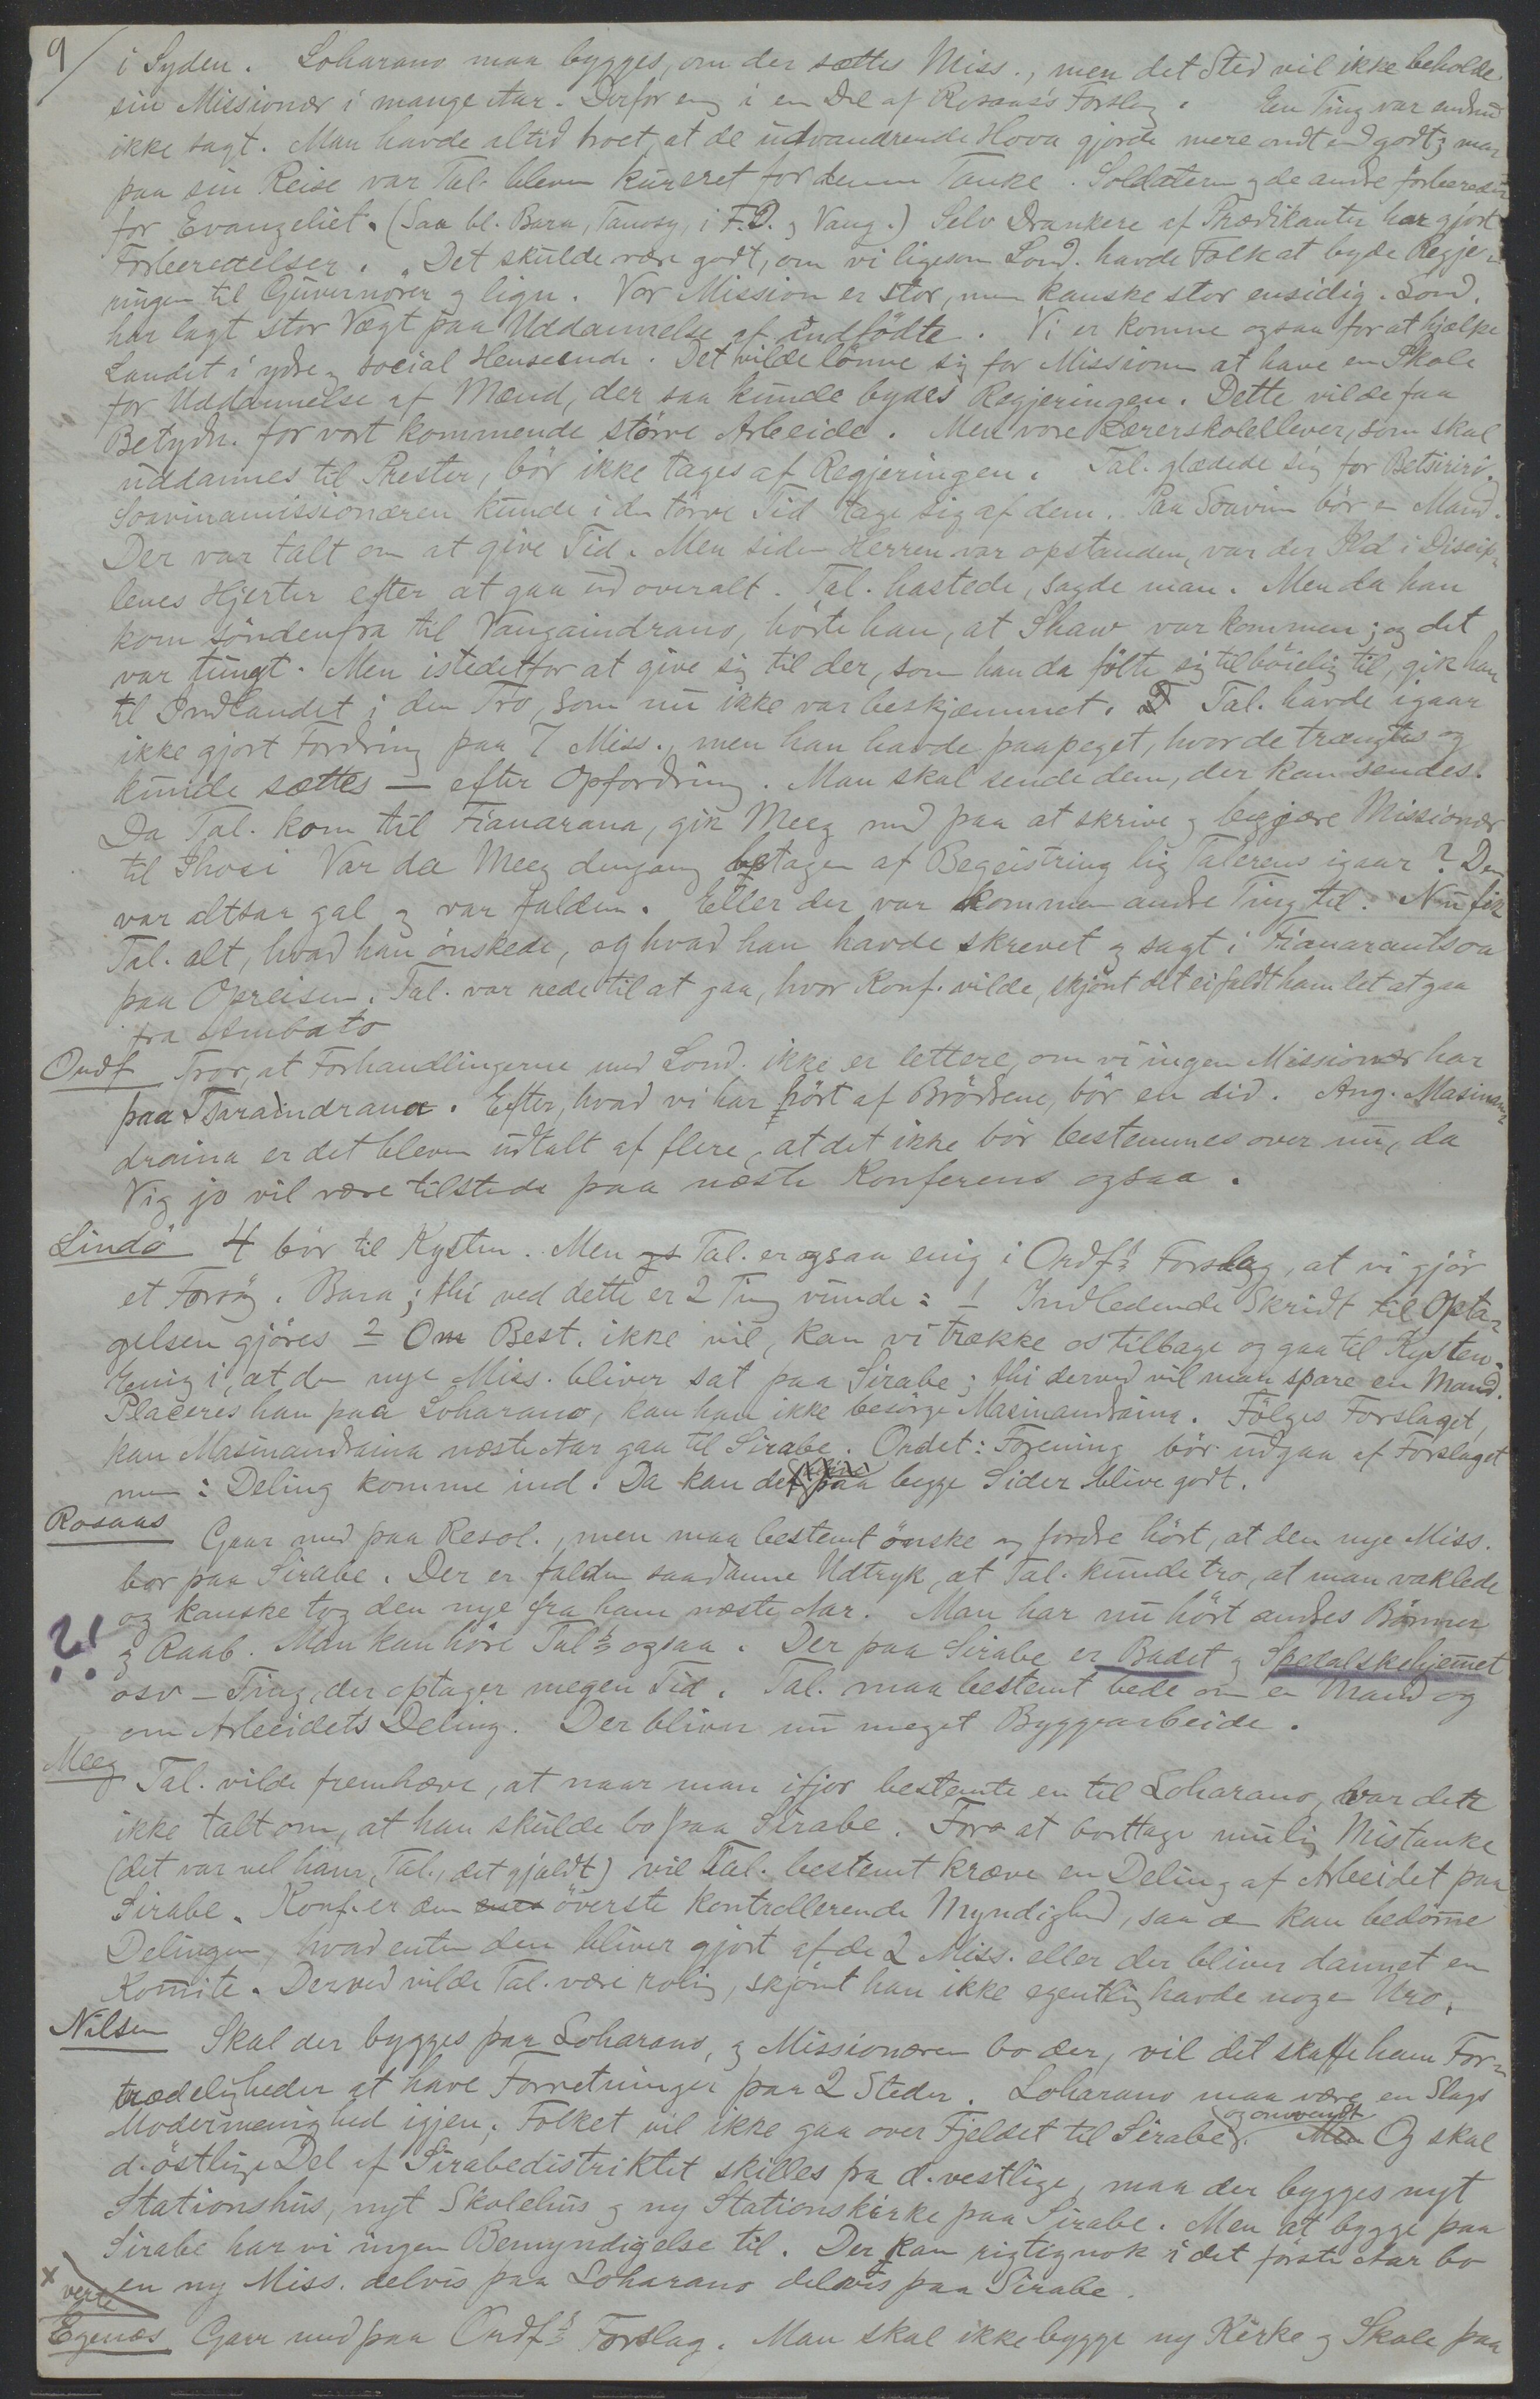 9/
i Syden. Loharano maa bygges, om der sættes Miss., men det Sted vil ikke beholde
sin Missionær i mange Aar. Derfor enig i en Del af Rosaas's Forslag. Een Ting var endnu
ikke sagt. Man havde altid troet, at de udvandrende Hova gjorde mere ondt end godt; men
paa sin Reise var Tal. bleven kureret for denne Tanke. Soldaterne og de andre forbereder
for Evangeliet. (Saa bl. Bara, Tanosy, i F.D. og Vang.) Selv Drankere af Prædikanter har gjort
Forberedelser. Det skulde være godt, om vi ligesom Lond. havde Folk at byde Regje-
ringen til Guvernører og lign. Vor Mission er stor, men kanske stor ensidig. Lond.
har lagt stor Vægt paa Uddannelse af indfödte. Vi er komne ogsaa for at hjælpe
Landet i ydre og social Henseende. Det vilde lönne sig for Missionen at have en Skole
for Uddannelse af Mænd, der saa kunde bydes Regjeringen. Dette vilde faa
Betydn. for vort kommende större Arbeide. Men vore Lærerskoleelever, som skal
uddannes til Prester, bör ikke tages af Regjeringen. Tal. glædede sig for Betsiriri.
Soavinamissionæren kunde i den törre Tid tage sig af dem. Paa Soavina bör en Mand.
Der var talt om at give Tid. Men siden Herren var opstanden, var der Ild i Discip-
lenes Hjerter efter at gaa ud overalt. Tal. hastede, sagde man. Men da han
kom söndenfra til Vangaindrano, hörte han, at Shaw var kommen; og det
var tungt. Men istedetfor at give sig til der, som han da fölte sig tilböielig til, gik han
til Indlandet i den Tro, som nu ikke var beskjæmmet. Tal. havde igaar
ikke gjort Fordring paa 7 Miss., men han havde paapeget, hvor de trængtes og
kunde sættes — efter Opfordring. Man skal sende dem, der kan sendes.
Da Tal. kom til Fianarana, gik Meeg med paa at skrive og begjære Missionær
til Ihosi Var da Meeg dengang betagen af Begeistring lig Talerens igaar? Den
var altsaa gal og var falden. Eller der var kommen andre Ting til. Nu fik
Tal. alt, hvad han önskede, og hvad han havde skrevet og sagt i Fianarantsoa
paa Opreisen. Tal. var rede til at gaa, hvor Konf. vilde, skjönt det ei faldt ham let at gaa
fra Ambato
Ordf Tror, at Forhandlingerne med Lond. ikke er lettere, om vi ingen Missionær har
paa Tsaraindrana. Efter, hvad vi har hört af Brödrene, bör en did. Ang. Masinan-
draina er det bleven udtalt af flere, at det ikke bör bestemmes over nu, da
Vig jo vil være tilstede paa næste Konferens ogsaa.
Lindö 4 bör til Kysten. Men Tal. er ogsaa enig i Ordf's Forslag, at vi gjör
et Forsög i Bara; thi ved dette er 2 Ting vunde: 1 Indledende Skridt til Opta-
gelsen gjöres 2 Om Best. ikke vil, kan vi trække os tilbage og gaa til Kysten.
Enig i, at den nye Miss. bliver sat paa Sirabe; thi derved vil man spare en Mand.
Placeres han paa Loharano, kan han ikke besörge Masinandraina. Fölges Forslaget,
kan Masinandraina næste Aar gaa til Sirabe. Ordet: Forening bör udgaa af Forslaget
men: Deling komme ind. Da kan det paa begge Sider blive godt.
Rosaas Gaar med paa Resol., men maa bestemt önske og fordre hört, at den nye Miss.
bor paa Sirabe. Der er falden saadanne Udtryk, at Tal. kunde tro, at man vaklede
og kanske tog den nye fra ham næste Aar. Man har nu hört andres Bönner
?! og Raab. Man kan höre Tal's ogsaa. Der paa Sirabe er Badet og Spedalskehjemmet
osv – Ting, der optager megen Tid. Tal. maa bestemt bede om en Mand og
om Arbeidets Deling. Der bliver nu meget Byggearbeide.
Meeg Tal. vilde fremhæve, at naar man ifjor bestemte en til Loharano, var det
ikke talt om, at han skulde bo paa Sirabe. For at borttage mulig Mistanke
(det var vel ham, Tal., det gjaldt) vil Tal. bestemt kræve en Deling af Arbeidet paa
Sirabe. Konf. er den överste kontrollerende Myndighed, saa den kan bedömme
Delingen, hvad enten den bliver gjort af de 2 Miss. eller der bliver dannet en
Komite. Derved vilde Tal. være rolig, skjönt han ikke egentlig havde nogen Uro.
Nilsen Skal der bygges paa Loharano, og Missionæren bo der, vil det skaffe ham For-
trædeligheder at have Forretninger paa 2 Steder. Loharano maa være en Slags
Modermenighed igjen. Folket vil ikke gaa over Fjeldet til Sirabe og omvendt. Og skal
d. östlige Del af Sirabedistriktet skilles fra d. vestlige, maa der bygges nyt
Stationshus, nyt Skolehus og ny Stationskirke paa Sirabe. Men at bygge paa
Sirabe har vi ingen Bemyndigelse til. Der kan rigtignok i det förste Aar bo
x en ny Miss. delvis paa Loharano delvis paa Sirabe.
Egenæs Gaar med paa Ordf's Forslag. Man skal ikke bygge ny Kirke og Skole paa